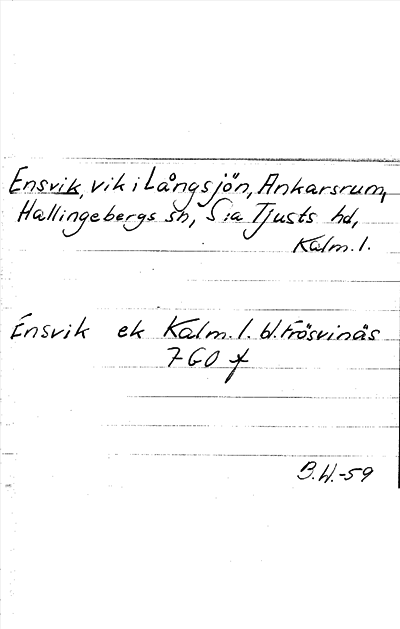 Ensvik, vik i Långsjön, Ankarsrum,
Hallingebergs sn, S:a Tjusts hd,
Kalm. l.
Ensvik ek Kalm. l. bl. Frösvinås
7 GO f
B.W.-59